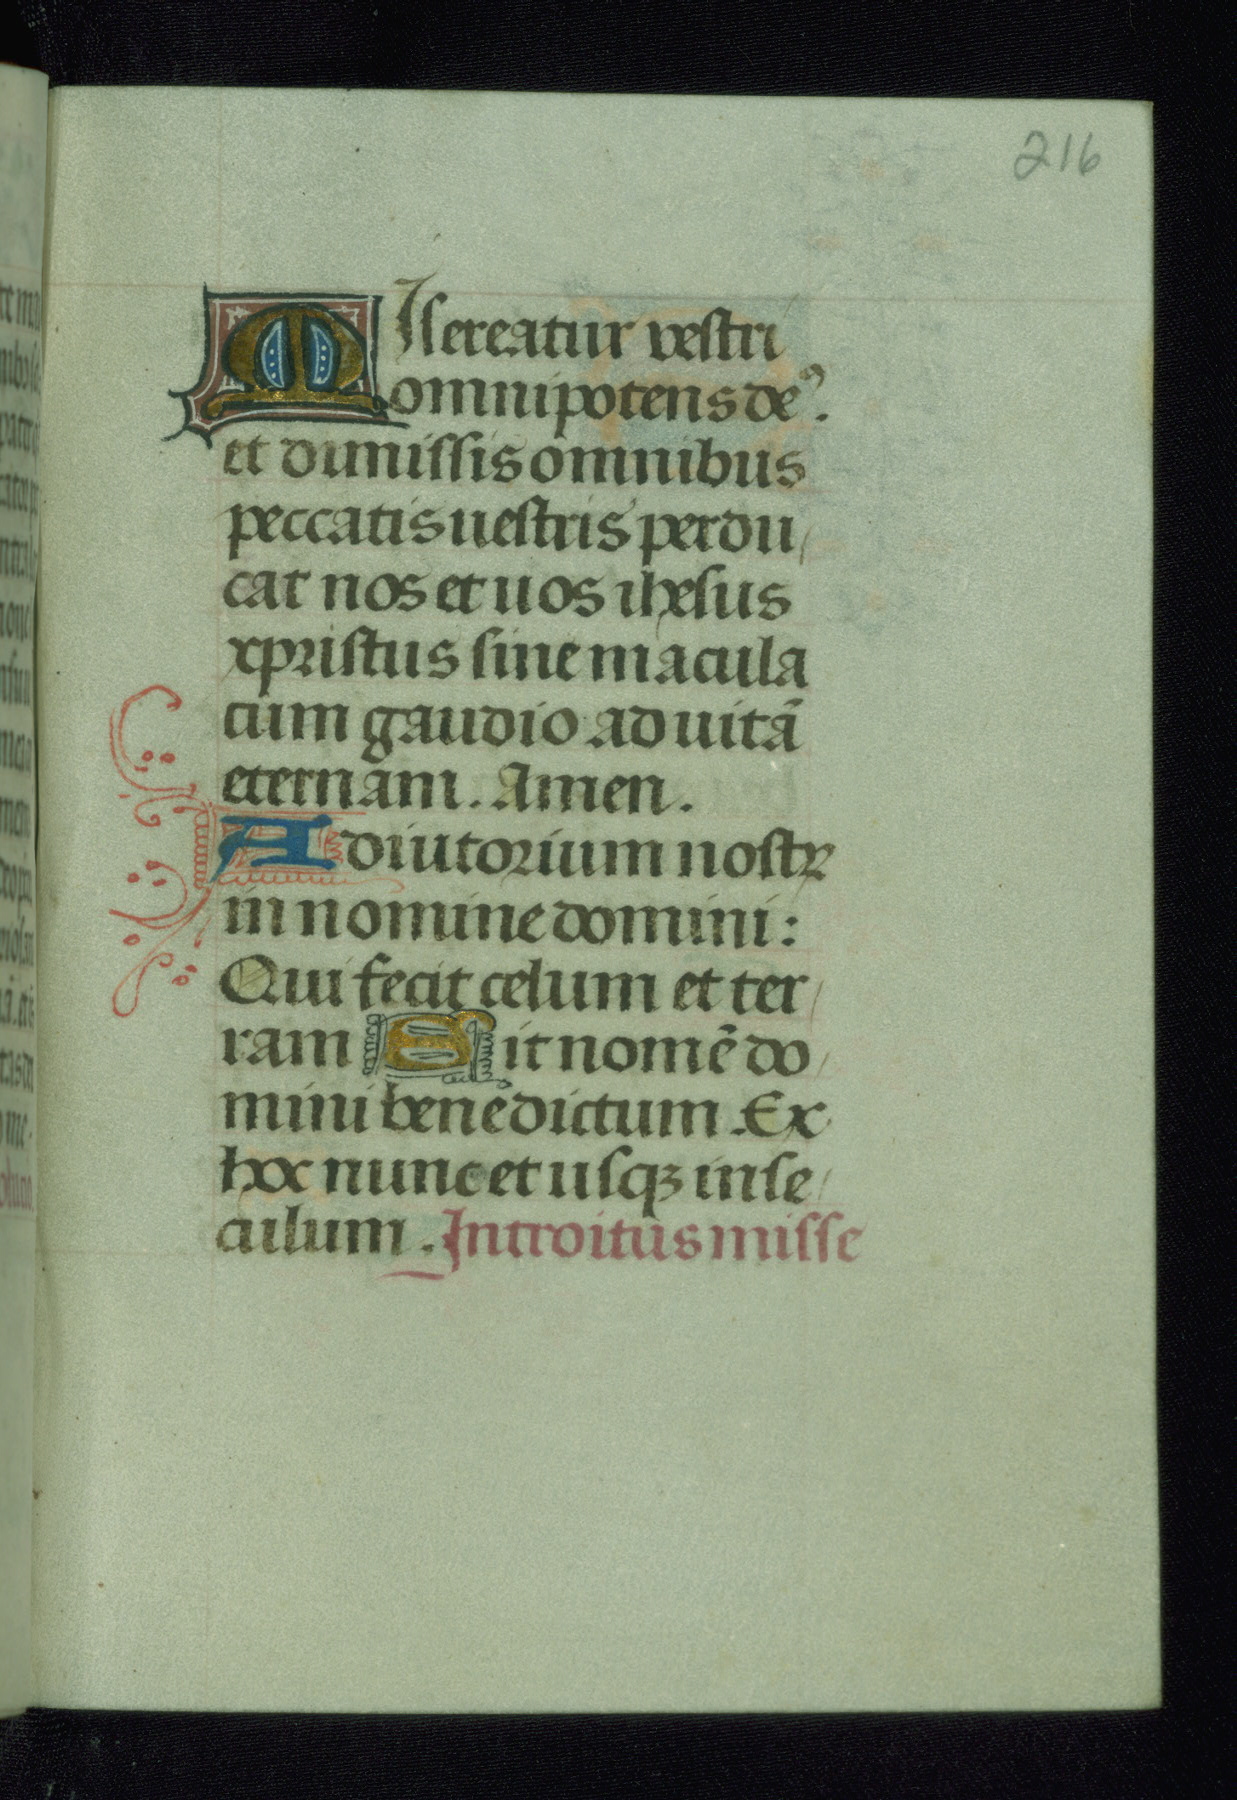 216
Misereatur vestri
omnipotens deꝰ.
et dimissis omnibus
peccatis uestris perdu
cat nos et uos ihesus
xpristus sine macula
cum gaudio ad uitā
eternam. Amen.
Adiutorium nostꝝ
in nomine domini:
Qui fecit celum et ter
ram Sit nomē do
mini benedictum. Ex
hoc nunc et usqꝫ in se
culum. Introitus misse